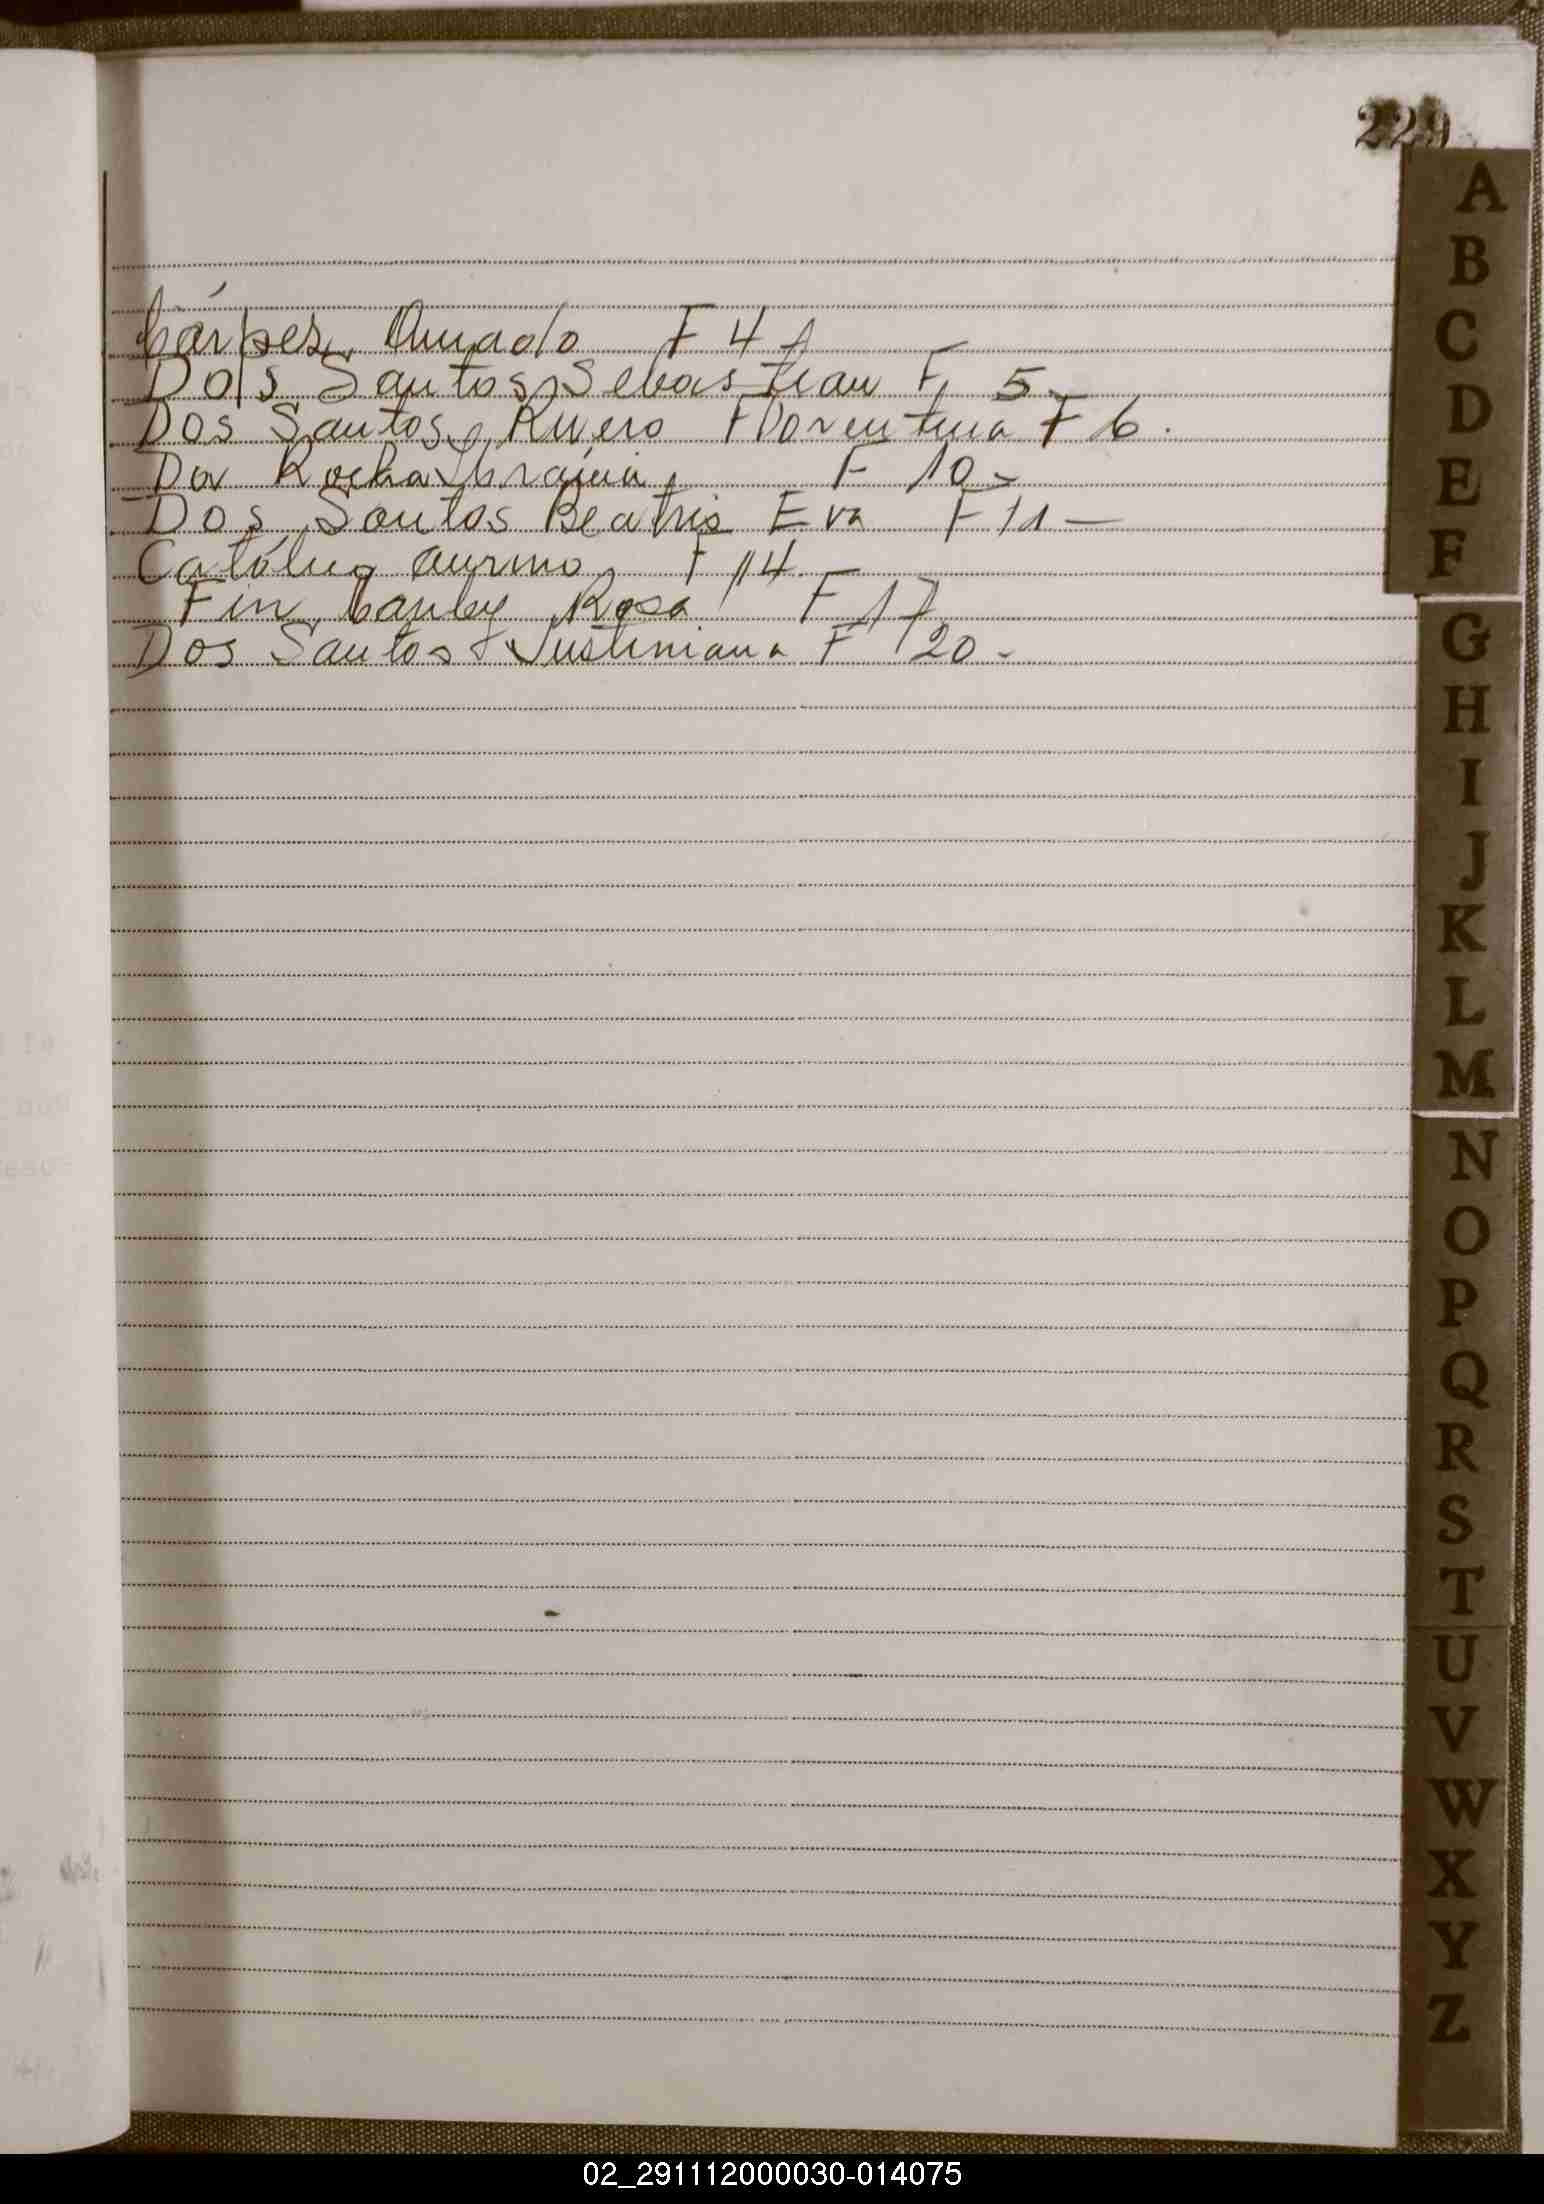 229
Cárpes, Amado F 4
Dos Santos Sebastian F. 5.
Dos Santos Rivero Florentina F 6.
Da Rocha F 10
Dos Santos Beatris Eva F 11 —
Católico F 14
Fin Rosa F 17
Dos Santos Justiniana F 20 -
A
B
C
D
E
F
G
H
I
J
K
L
M
N
O
P
Q
R
S
T
U
V
W
X
Y
Z
02_291112000030-014075